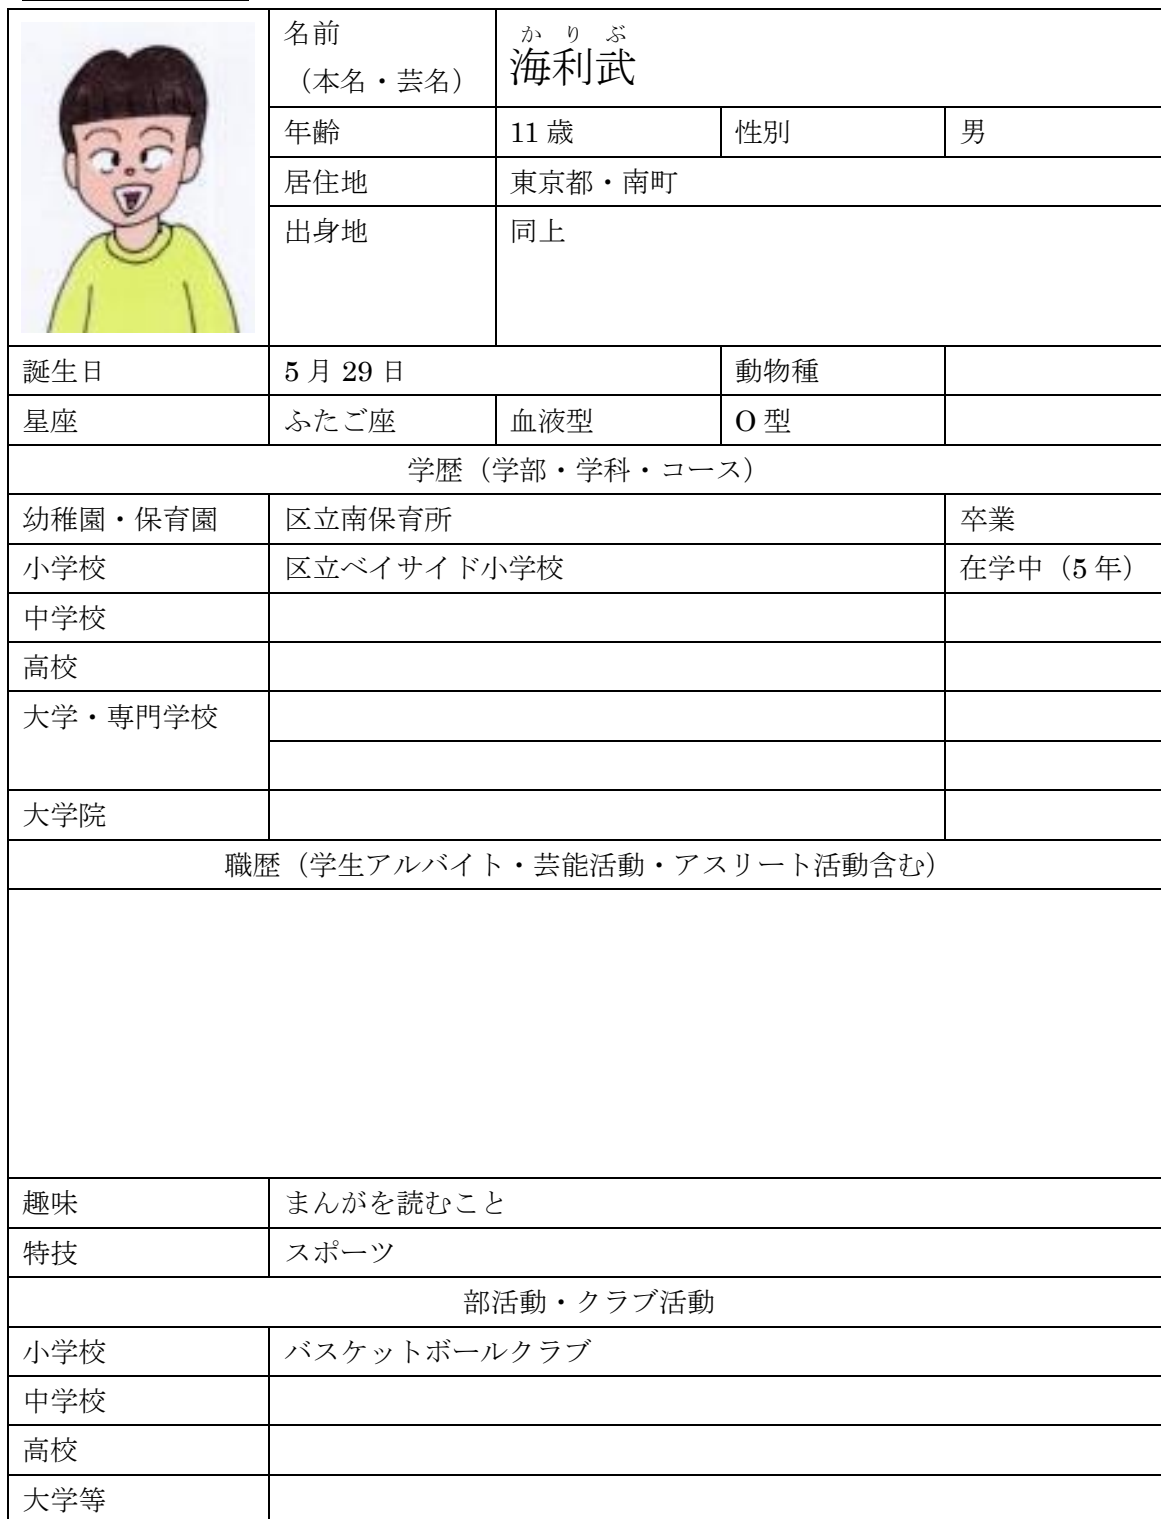 かりぶ
名前 海利武
（本名・芸名）
年齢 11歳 性別 男
居住地 東京都・南町
出身地 同上
誕生日 5月29日 動物種
星座 ふたご座 血液型 O型
学歴（学部・学科・コース）
幼稚園・保育園 区立南保育所 卒業
小学校 区立ベイサイド小学校 在学中（5年）
中学校
高校
大学・専門学校
大学院
職歴（学生アルバイト・芸能活動・アスリート活動含む）
趣味 まんがを読むこと
特技 スポーツ
部活動・クラブ活動
小学校 バスケットボールクラブ
中学校
高校
大学等